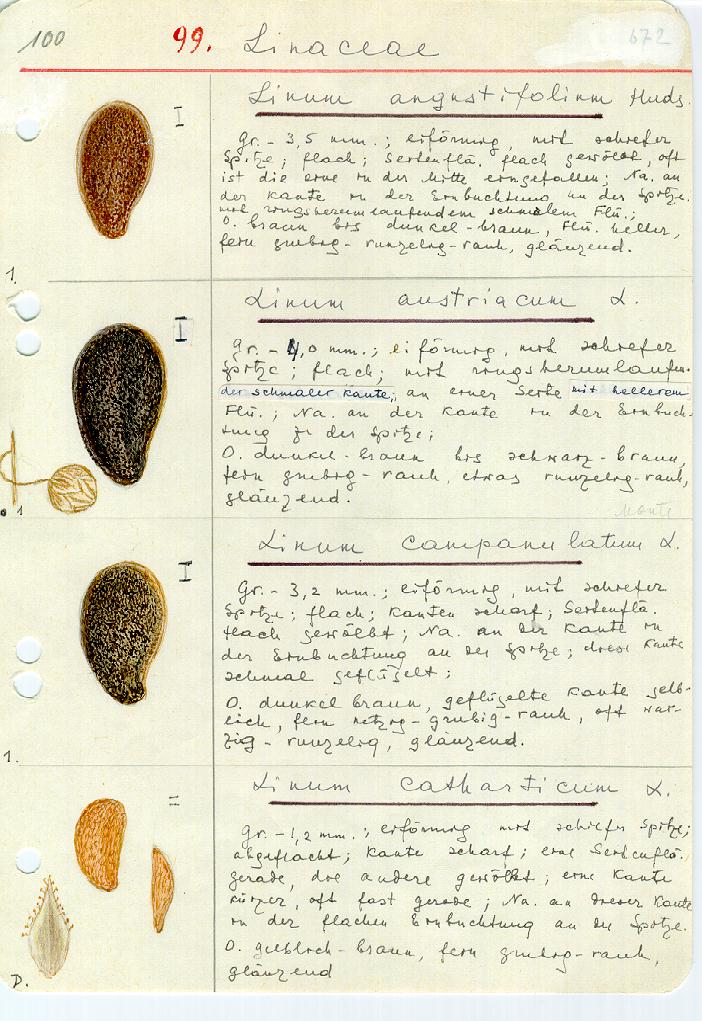 100 99. Linaceae 672
I Linum angustifolium Huds.
Gr. - 3,5 mm.; eiförmig, mit schiefer
Spitze; flach; Seitenflä. flach gewölbt, oft
ist die eine in der Mitte eingefallen; Na. an
der Kante in der Einbuchtung an der Spitze.
mit ringsherumlaufendem schmalem Flü.;
O. braun bis dunkel-braun, Flü. heller,
fein grubig-runzelig-rauh, glänzend.
1.
I Linum austriacum L.
Gr. - 4,0 mm.; eiförmig, mit schiefer
Spitze; flach; mit ringsherumlaufen-
der schmaler Kante, an einer Seite mit hellerem
Flü.; Na. an der Kante in der Einbuch-
tung zu der Spitze;
O. dunkel-braun bis schwarz-braun,
fein grubig-rauh, etwas runzelig-rauh,
glänzend.
1
I Linum campanulatum L.
Gr. - 3,2 mm.; eiförmig, mit schiefer
Spitze; flach; Kanten scharf; Seitenflä.
flach gewölbt; Na. an der Kante in
der Einbuchtung an der Spitze; diese Kante
schmal geflügelt;
O. dunkel braun, geflügelte Kante gelb-
lich, fein netzig-grubig-rauh, oft war-
zig-runzelig, glänzend.
1.
Linum catharticum L.
Gr. - 1,2 mm.; eiförmig mit schiefer Spitze;
abgeflacht; Kante scharf; eine Seitenflä.
gerade, die andere gewölbt; eine Kante
kürzer, oft fast gerade; Na. an dieser Kante
in der flachen Einbuchtung an der Spitze.
O. gelblich-braun, fein grubig-rauh,
glänzend
D.